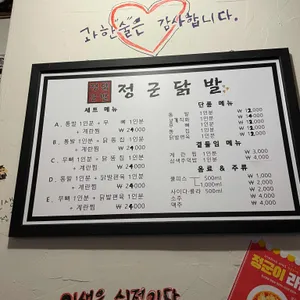 과한술은 감사합니다.
정근닭발
세트 메뉴
A. 통발 1인분 + 무뼈 1인분
+ 계란찜 ₩ 24,000
B. 통발 1인분 + 닭똥집 1인분
+ 계란찜 ₩ 24,000
C. 무뼈 1인분 + 닭똥집 1인분
+ 계란찜 ₩ 24,000
D. 통발 1인분 + 닭발편육 1인분
+ 계란찜 ₩ 24,000
E. 무뼈 1인분 + 닭발편육 1인분
+ 계란찜 ₩ 24,000
단품 메뉴
통발 1인분 ₩ 12,000
1인분
무뼈 1인분 ₩ 12,000
1인분 ₩ 12,000
닭발편육 1인분 ₩ 12,000
곁들임 메뉴
계란찜 1인분 ₩ 3,000
1인분 ₩ 4,000
음료 & 주류
쿨피스 500ml ₩ 1,000
1,000ml ₩ 2,000
사이다·콜라 500ml ₩ 2,000
소주 ₩ 4,000
맥주 ₩ 4,000
정근이
인생은